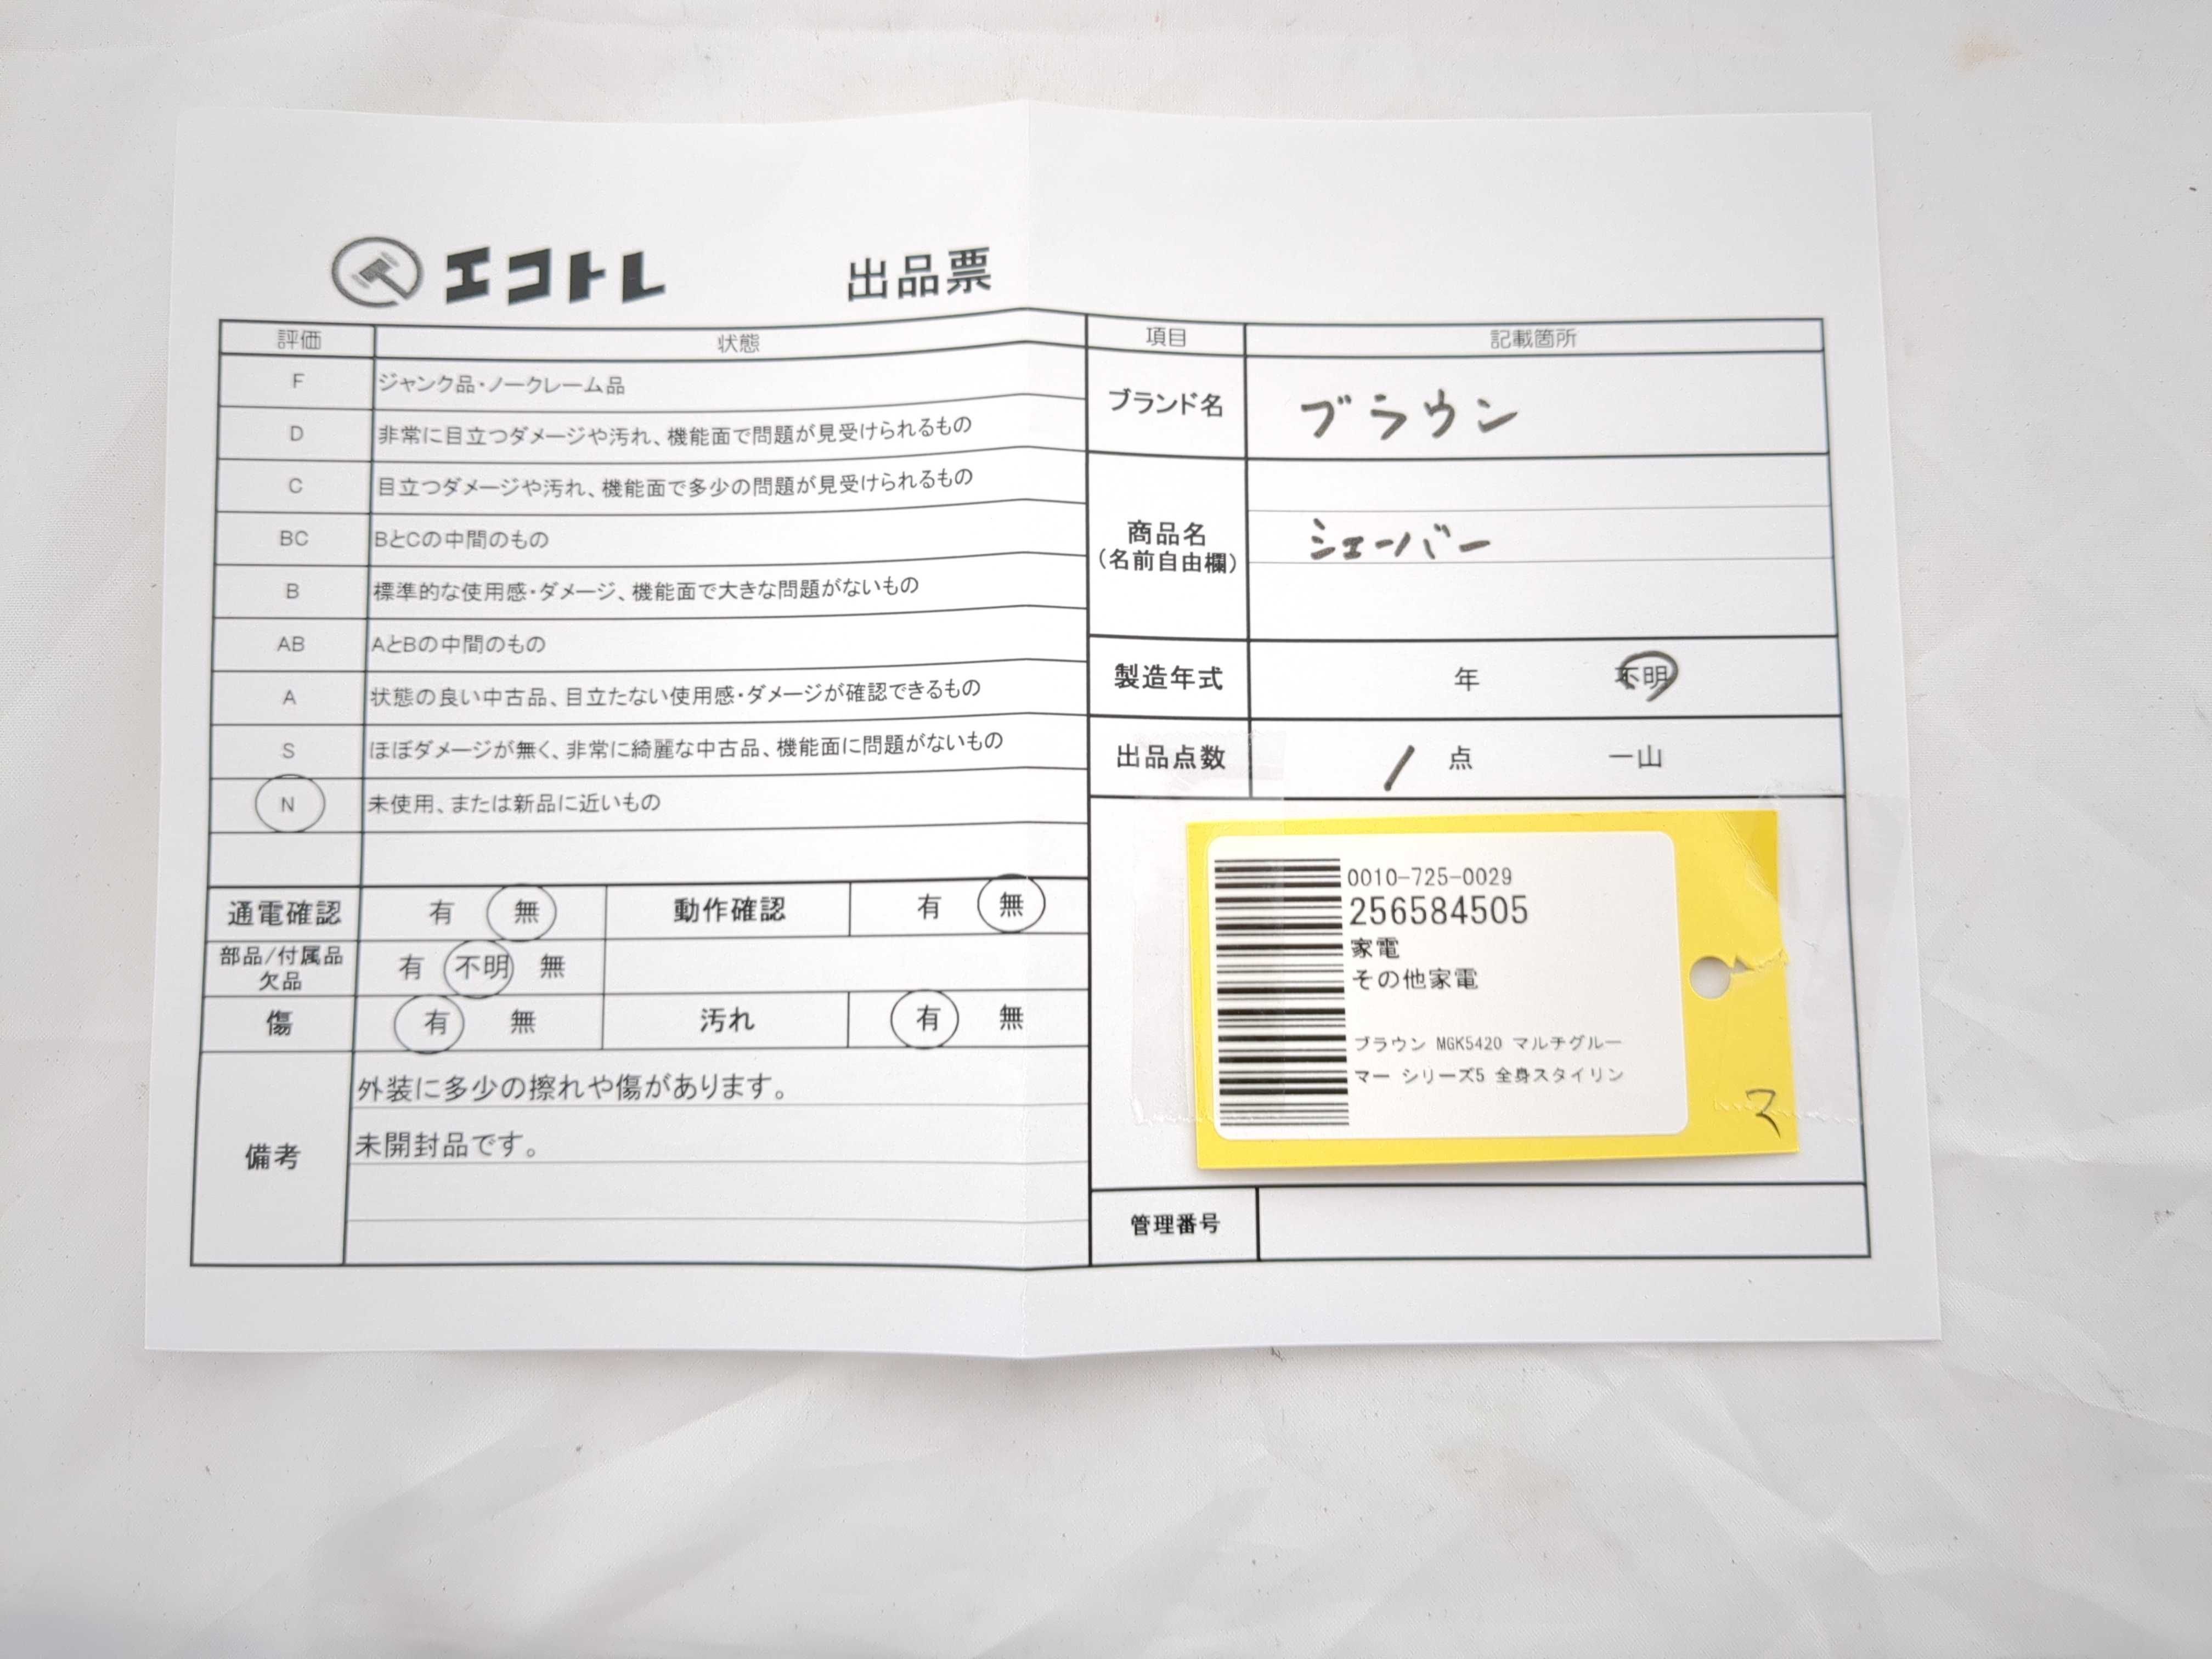 エコトレ 出品票
評価 状態
F ジャンク品・ノークレーム品
D 非常に目立つダメージや汚れ、機能面で問題が見受けられるもの
C 目立つダメージや汚れ、機能面で多少の問題が見受けられるもの
BC BとCの中間のもの
B 標準的な使用感・ダメージ、機能面で大きな問題がないもの
AB AとBの中間のもの
A 状態の良い中古品、目立たない使用感・ダメージが確認できるもの
S ほぼダメージが無く、非常に綺麗な中古品、機能面に問題がないもの
N 未使用、または新品に近いもの
通電確認 有 無 動作確認 有 無
部品/付属品
欠品 有 不明 無
傷 有 無 汚れ 有 無
備考
外装に多少の擦れや傷があります。
未開封品です。
項目 記載箇所
ブランド名 ブラウン
商品名
(名前自由欄) シェーバー
製造年式 年 不明
出品点数 1 点 一山
0010-725-0029
256584505
家電
その他家電
ブラウン MGK5420 マルチグルー
マー シリーズ5 全身スタイリン
管理番号